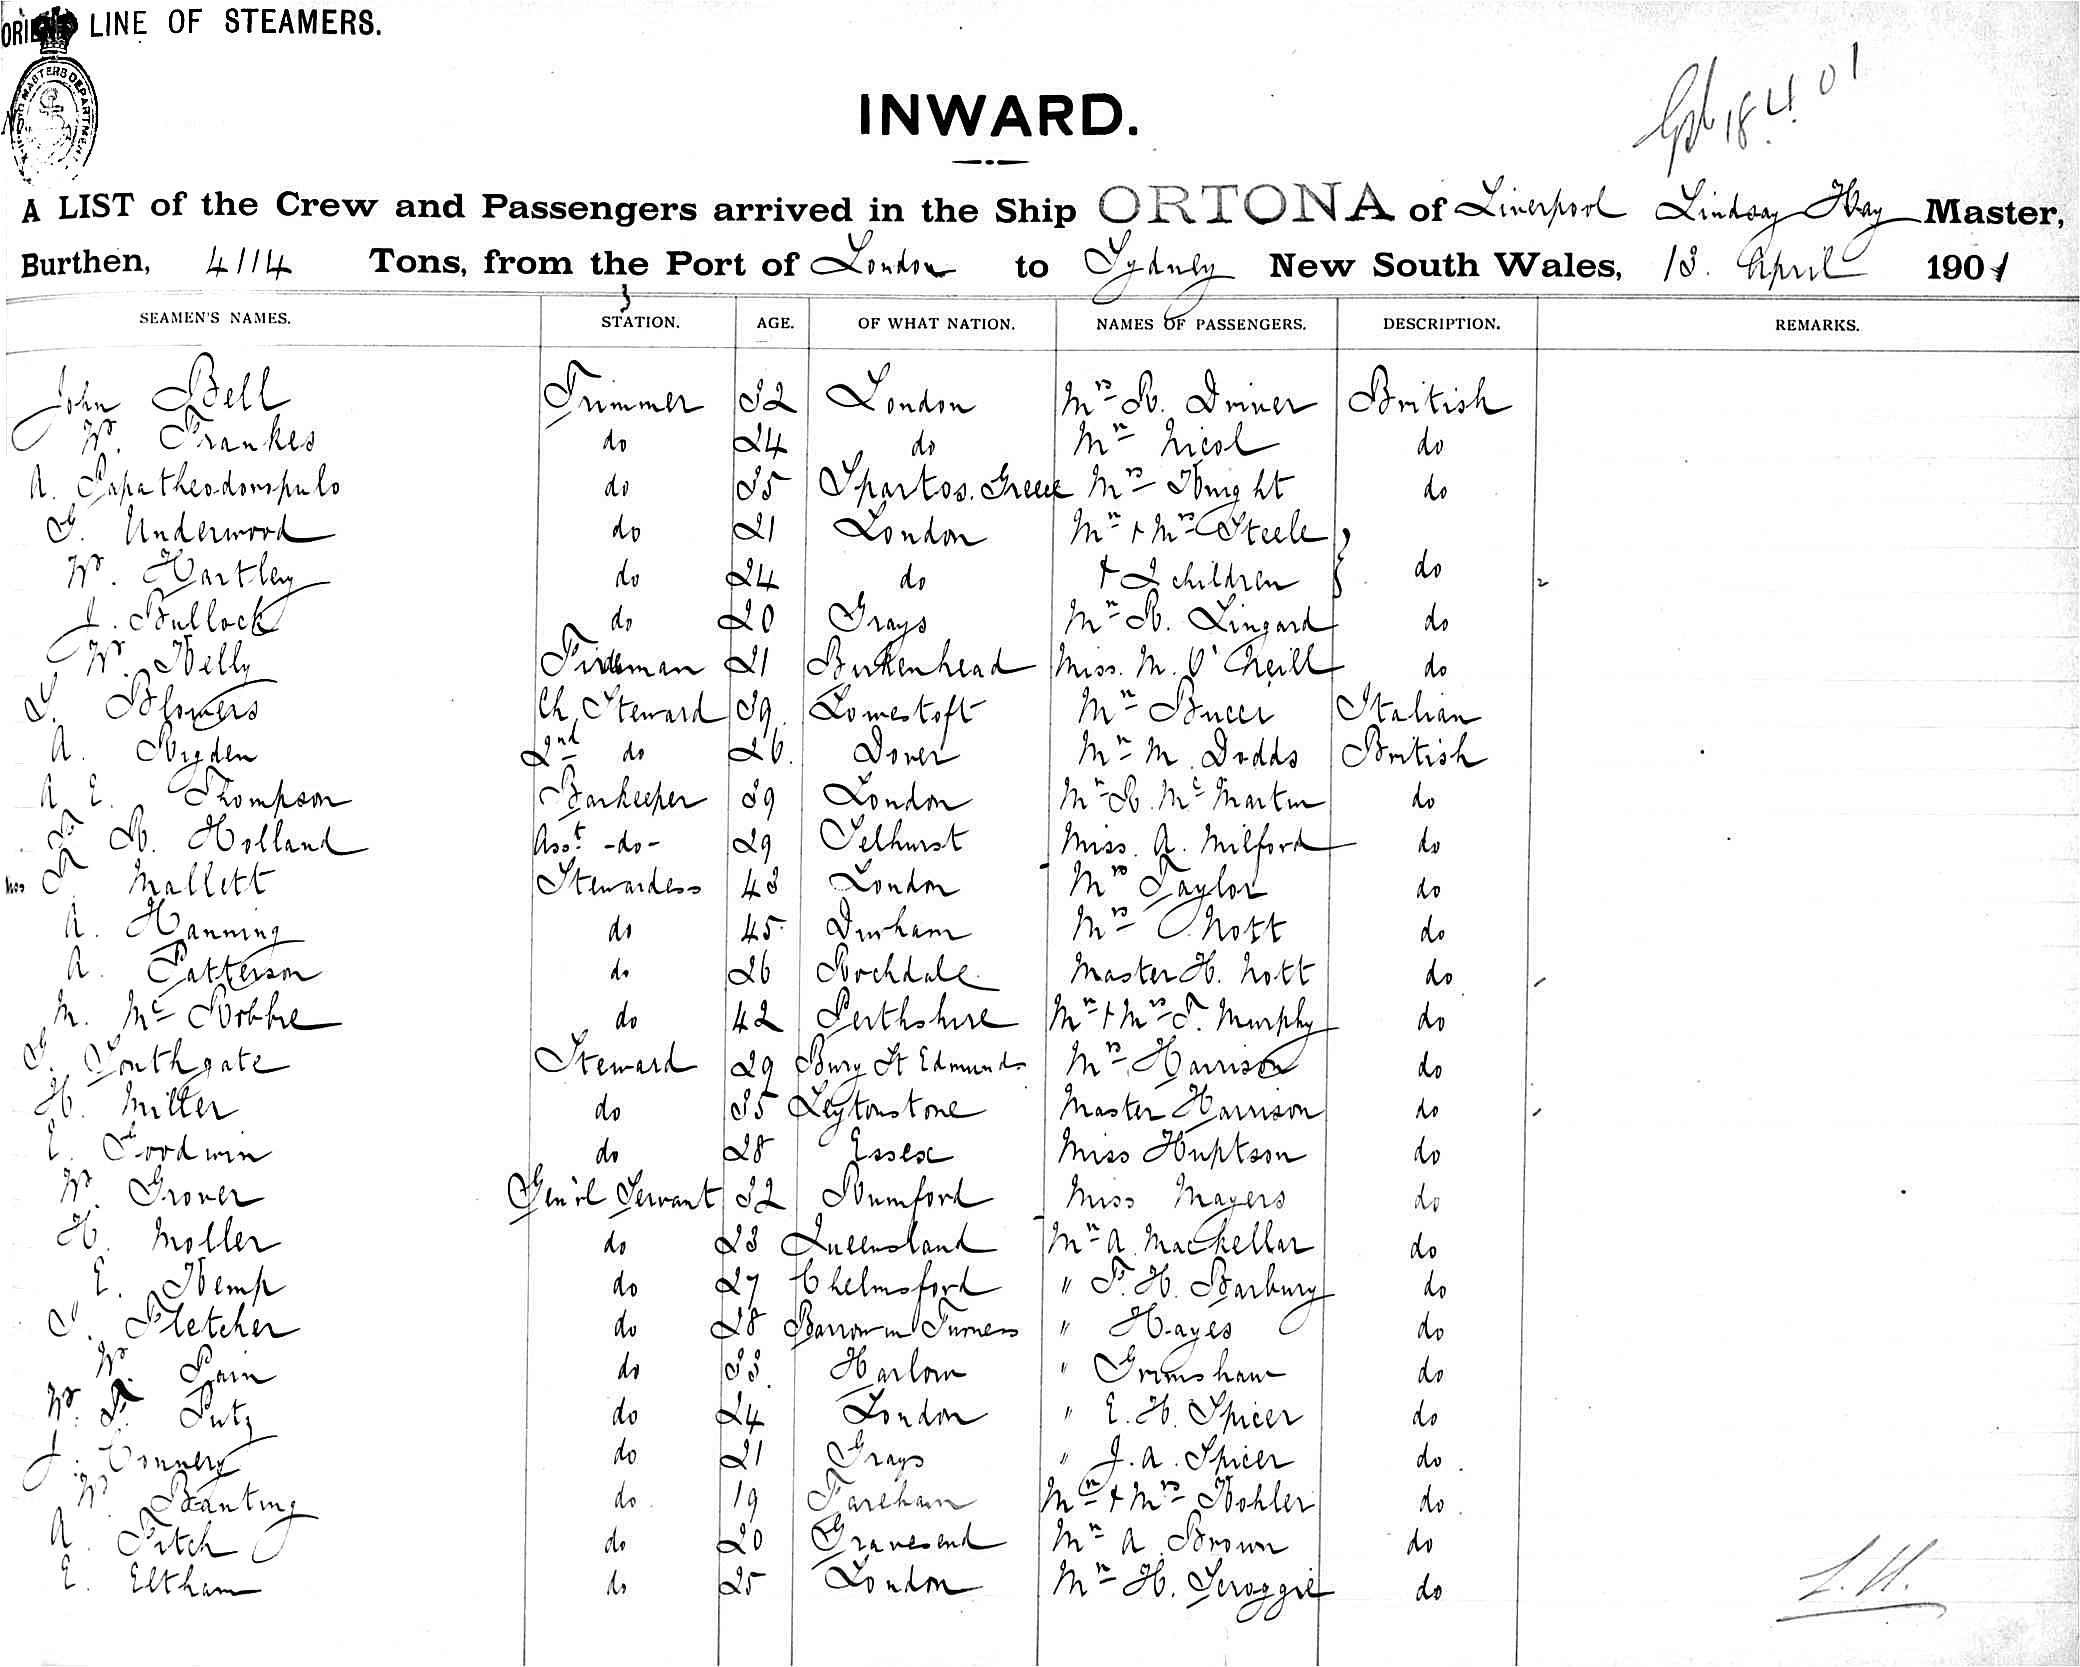 ORIENT LINE OF STEAMERS.
MASTERS DEPARTMENT
INWARD.
18.4.01
A LIST of the Crew and Passengers arrived in the Ship ORTONA of Liverpool Lindsay Hay Master,
Burthen, 4114 Tons, from the Port of London to Sydney New South Wales, 13. April 1901
SEAMEN'S NAMES. STATION. AGE. OF WHAT NATION. NAMES OF PASSENGERS. DESCRIPTION. REMARKS.
John Bell Trimmer 32 London Mrs R. Driver British
W. Frankes do 24 do Mr Nicol do
A. Papatheodoropulo do 35 Spartos. Greece Mrs Knight do
G. Underwood do 21 London Mr + Mrs Steele
W. Hartley do 24 do + 2 children } do
J. Bullock do 20 Grays Mr R. Lingard do
W. Kelly Fireman 21 Birkenhead Miss. M. O'Neill do
S. Blowers Ch. Steward 39. Lowestoft Mr Bucer Italian
A. Rigden 2nd do 26. Dover Mr M. Dodds British
A E. Thompson Barkeeper 39 London Mr R. Mc Martin do
F. R. Holland Asst. -do- 29 Selhurst Miss. A. Milford do
Mrs F. Mallett Stewardess 43 London Mrs Taylor do
A. Hanning do 45 Durham Mrs Nott do
A. Patterson do 26 Rochdale. Master H. Nott do
M. Mc Robbie do 42 Perthshire Mr + Mrs T. Murphy do
G. Southgate Steward 29 Bury St Edmunds Mrs Harrison do
H. Miller do 35 Leytonstone Master Harrison do
E. Goodwin do 28 Essex Miss Huptson do
W. Grover Gen'l Servant 32 Rumford Miss Mayers do
H. Moller do 23 Queensland Mr A. MacKellar do
E. Kemp do 27 Chelmsford " F. H. Barbury do
J. Fletcher do 28 Barrow in Furness " Hayes do
W. Pain do 33. Harlow " Grimshaw do
W. F. Putz do 24 London " E. H. Spicer do
J. Connery do 21 Grays " J. A. Spicer do.
W. Banting do. 19 Fareham Mr + Mrs Kohler do.
A. Fitch do 20 Gravesend Mr A. Brown do
E. Eltham do 25 London Mr H. Scroggie do
L.H.